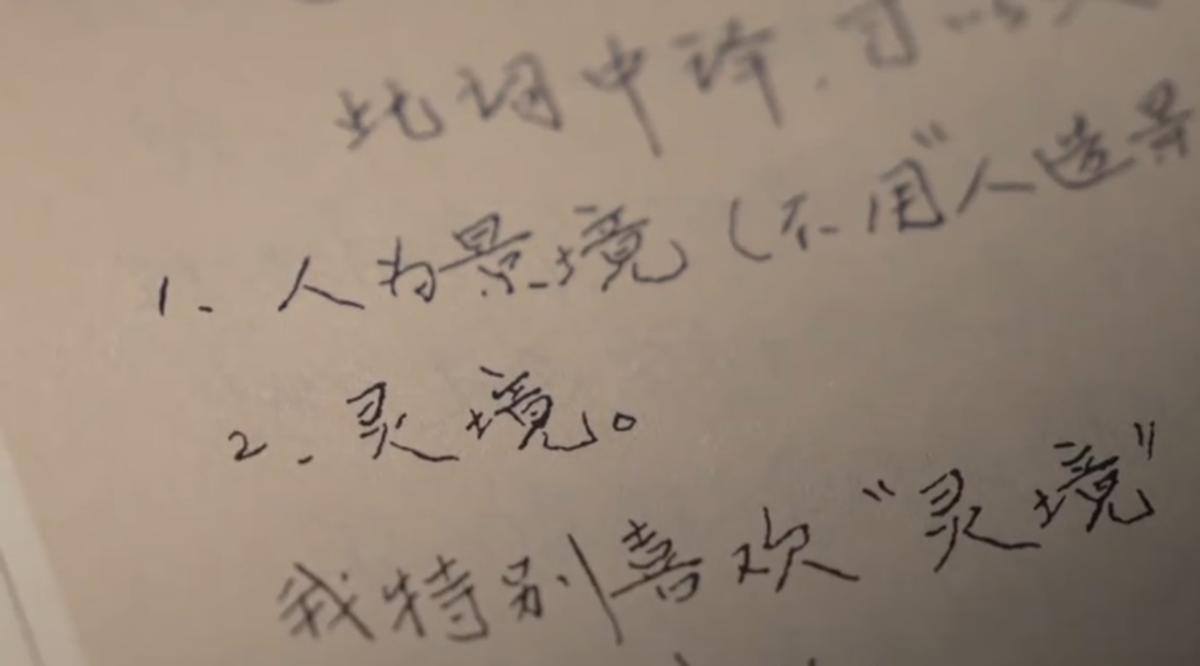 此词中译,可以是
1. 人为景境(不用"人造景
2. 灵境。
我特别喜欢"灵境"